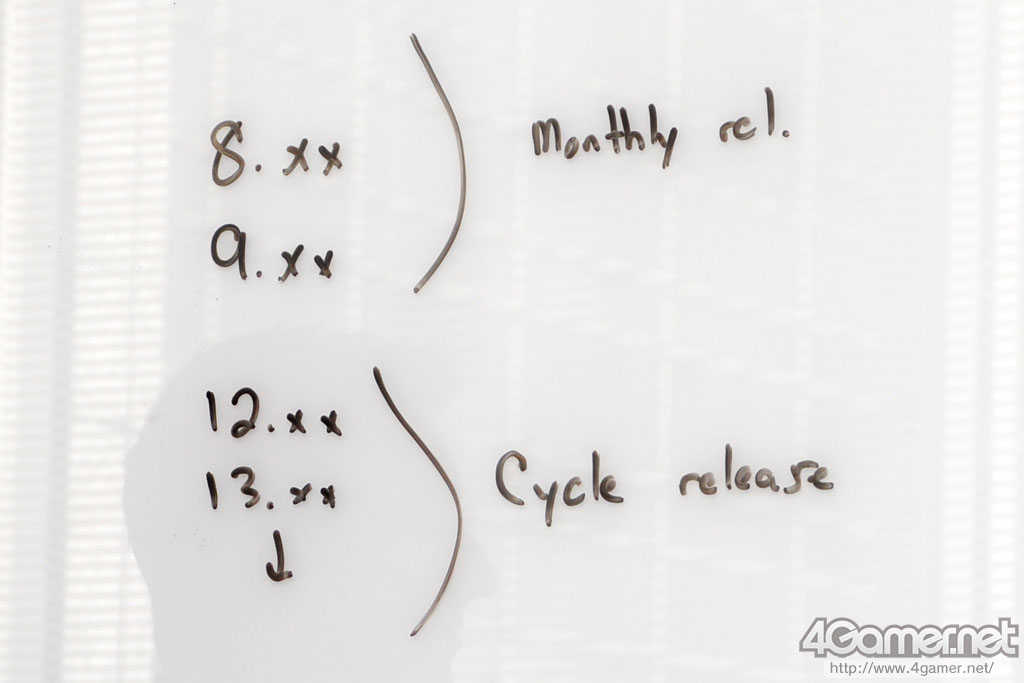 8.xx
9.xx
Monthly rel.
12.xx
13.xx
↓
Cycle release
4Gamer.net
http://www.4gamer.net/